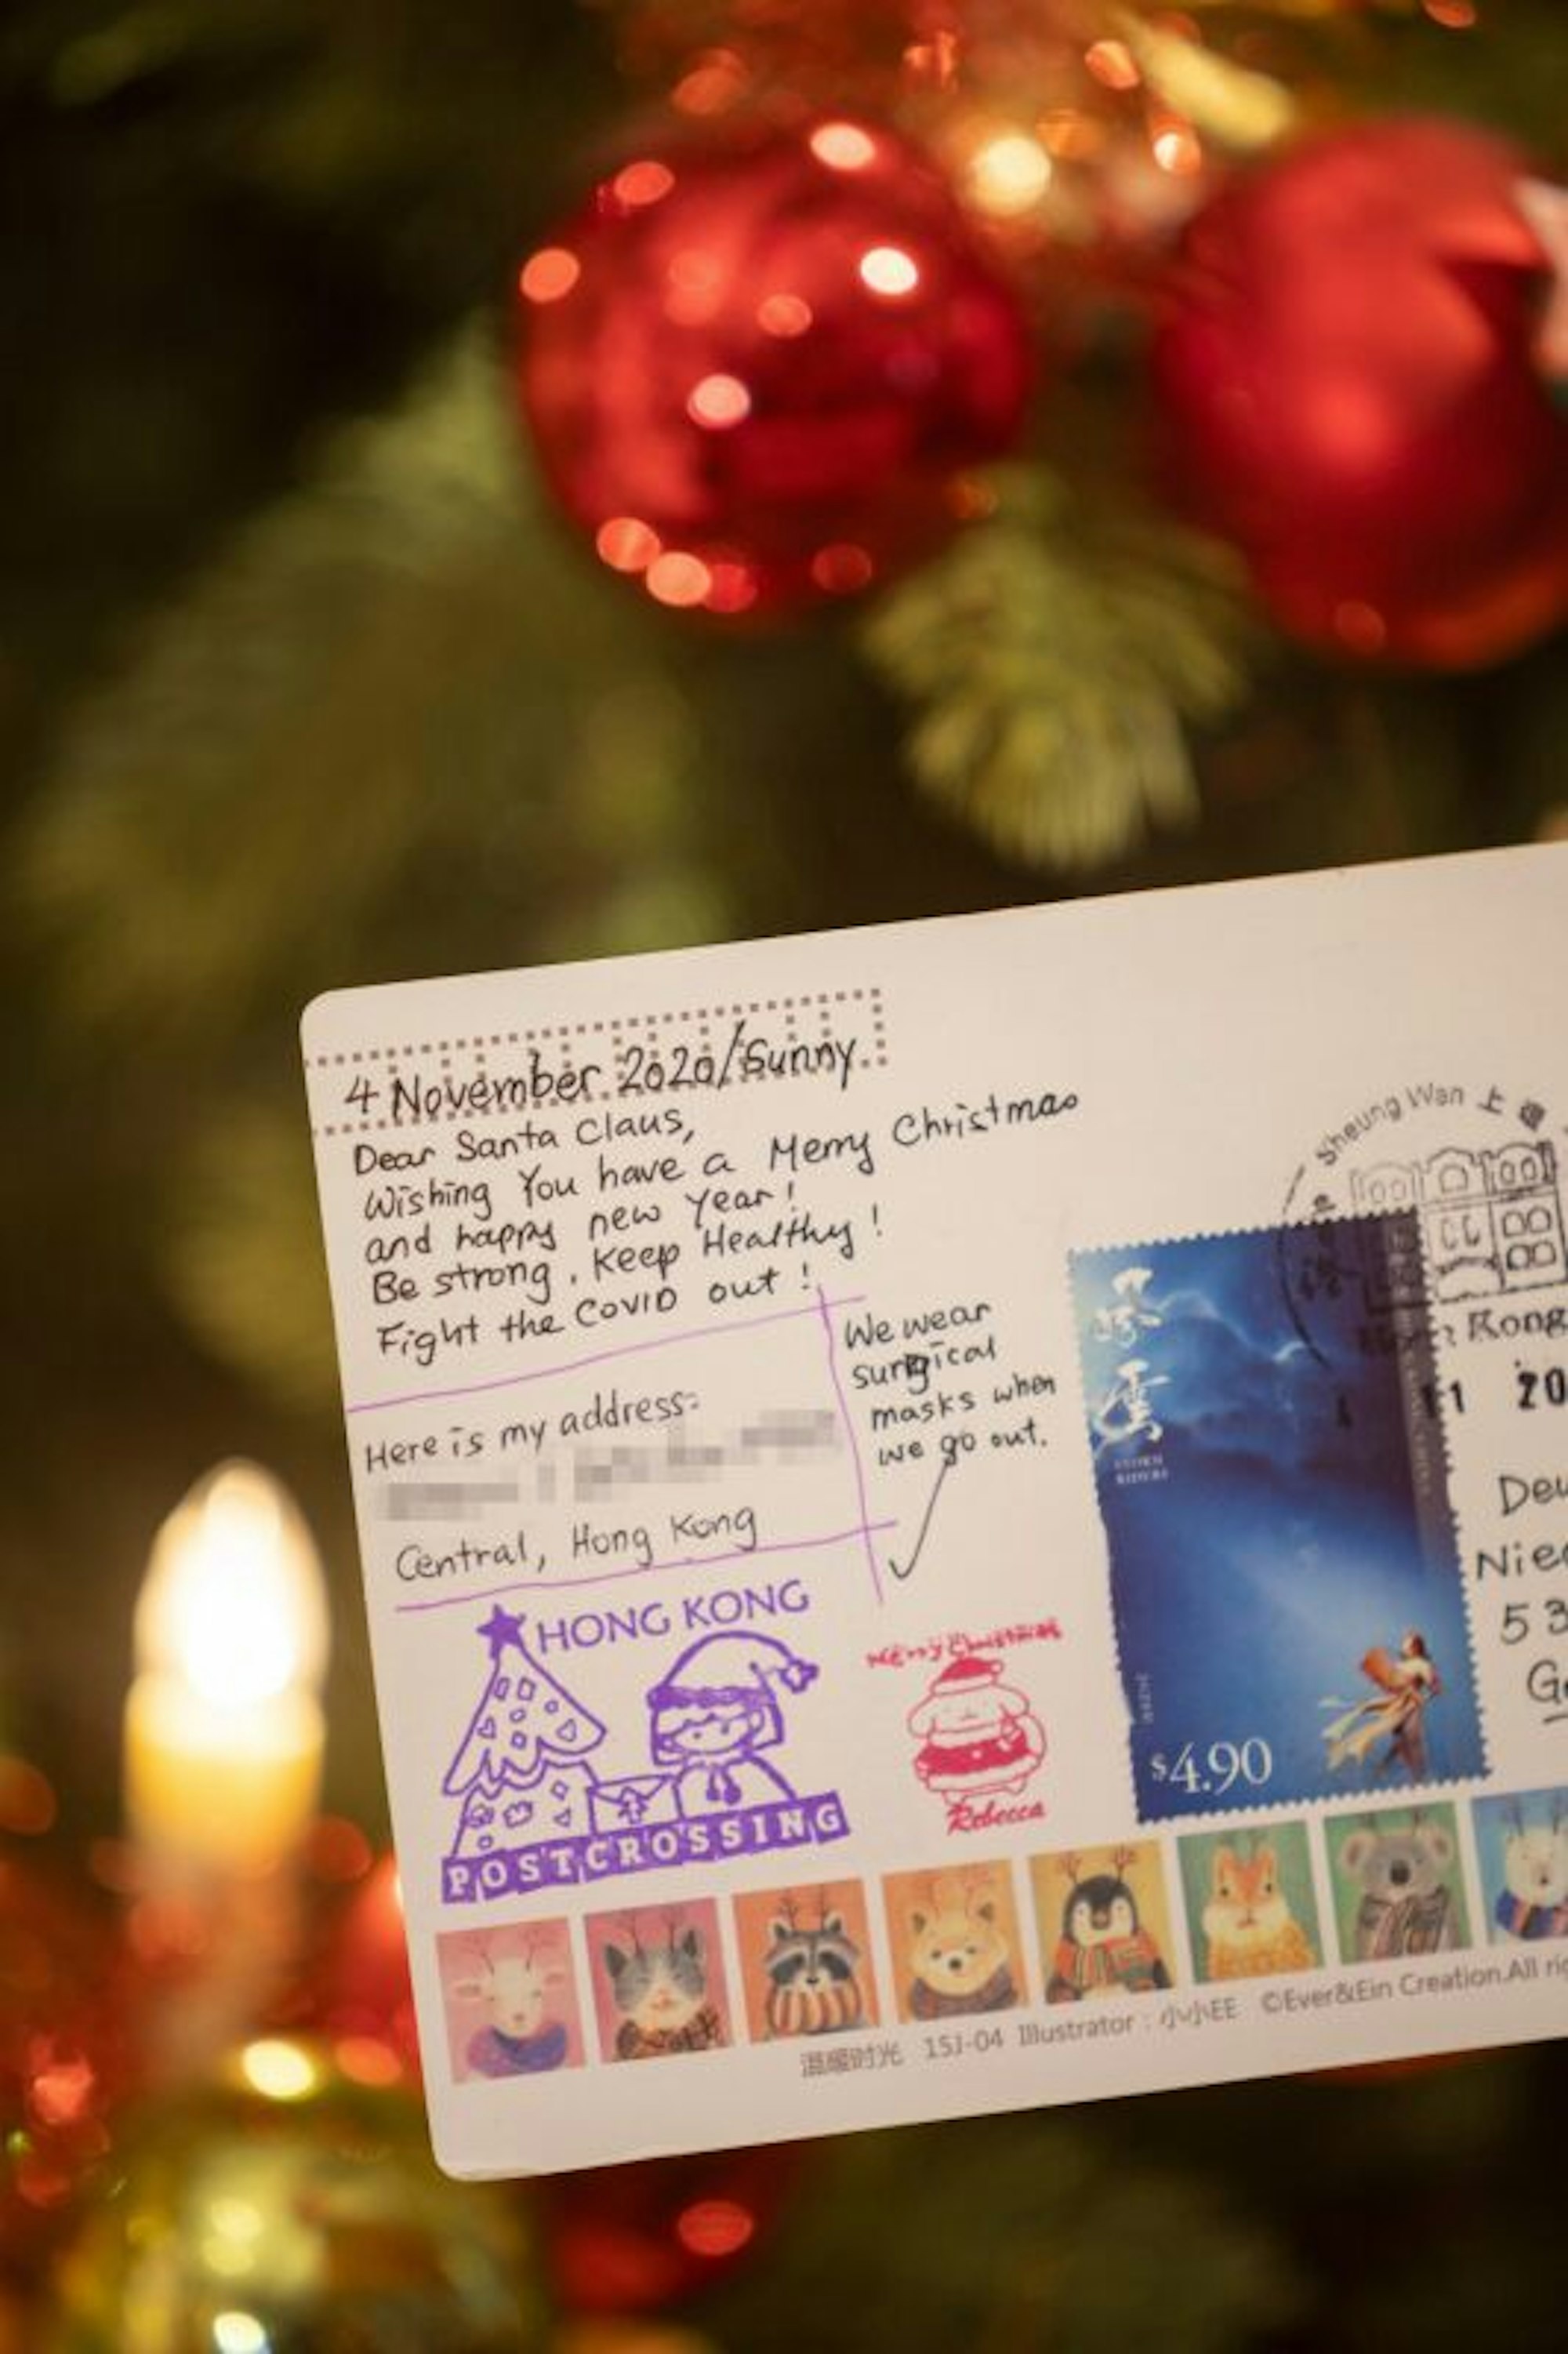 4 November 2020/Sunny
Dear Santa Claus,
Wishing You have a Merry Christmas
and happy new year!
Be strong, Keep Healthy!
Fight the COVID out!
We wear
surgical
masks when
we go out.
Here is my address:
Central, Hong Kong
HONG KONG
POSTCROSSING
Merry Christmas
Rebecca
Sheung Wan 上環
Kong
11 20
風雲
STORM
RIDERS
$4.90
Nie
53
温暖时光 15J-04 Illustrator : 小小EE ©Ever&Ein Creation.All